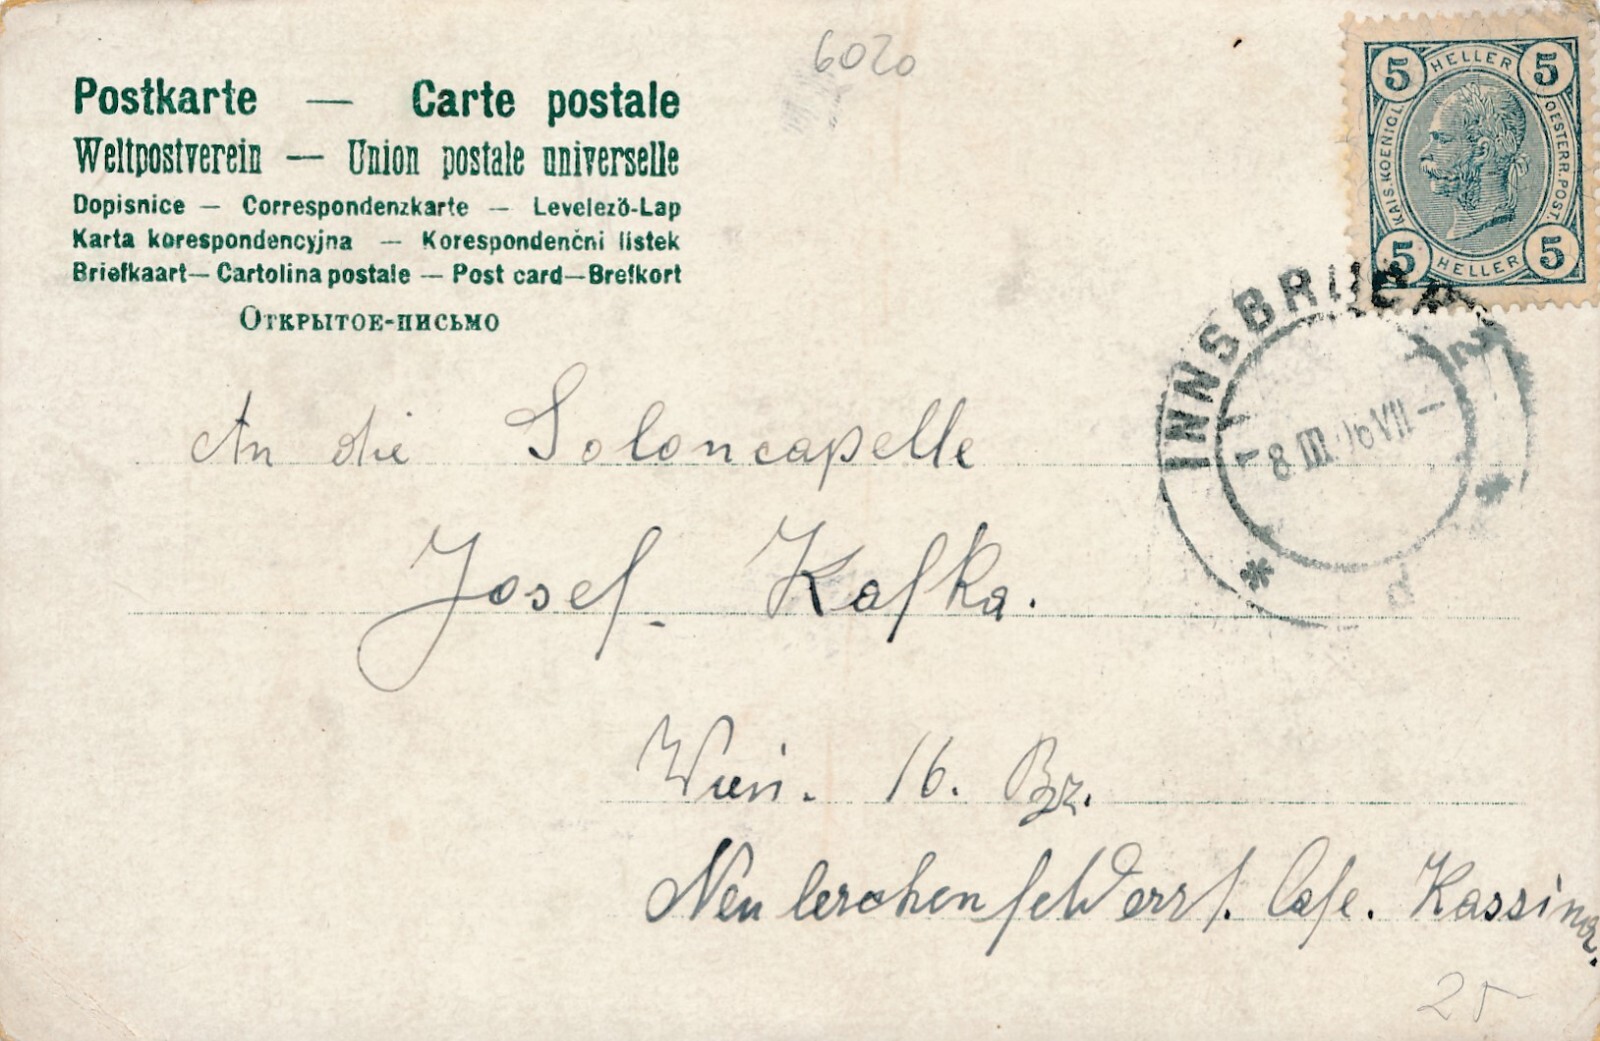 6020
Postkarte — Carte postale
Weltpostverein — Union postale universelle
Dopisnice — Correspondenzkarte — Levelező-Lap
Karta korespondencyjna — Korespondenčni listek
Briefkaart — Cartolina postale — Post card — Brefkort
Открытое-письмо
5 HELLER 5
KAIS. KOENIGL. OESTERR. POST.
5 HELLER 5
INNSBRUCK 2
8 III 06 VII -
An die Soloncapelle
Josef Kafka.
Wien. 16. Bz.
Neulerchenfelderst. Cafe.
25